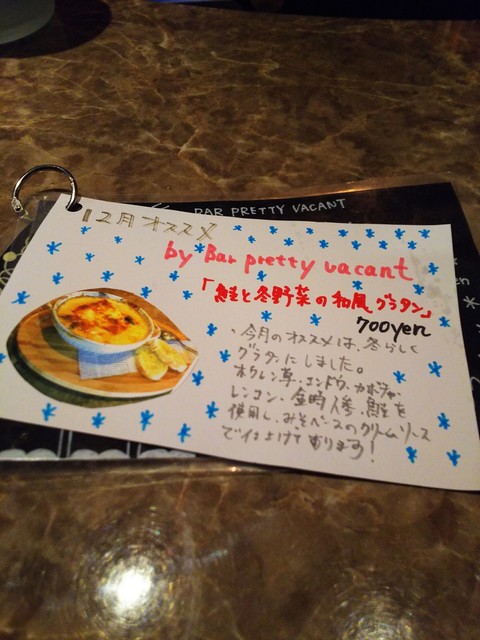 BAR PRETTY VACANT
12月オススメ
by Bar pretty vacant
「鮭と冬野菜の和風グラタン」
700yen
・今月のオススメは、冬らしく
グラタンにしました。
ホウレン草、エンドウ、カボチャ、
レンコン、金時人参、鮭を
使用し、みそベースのクリームソース
で仕上げております!